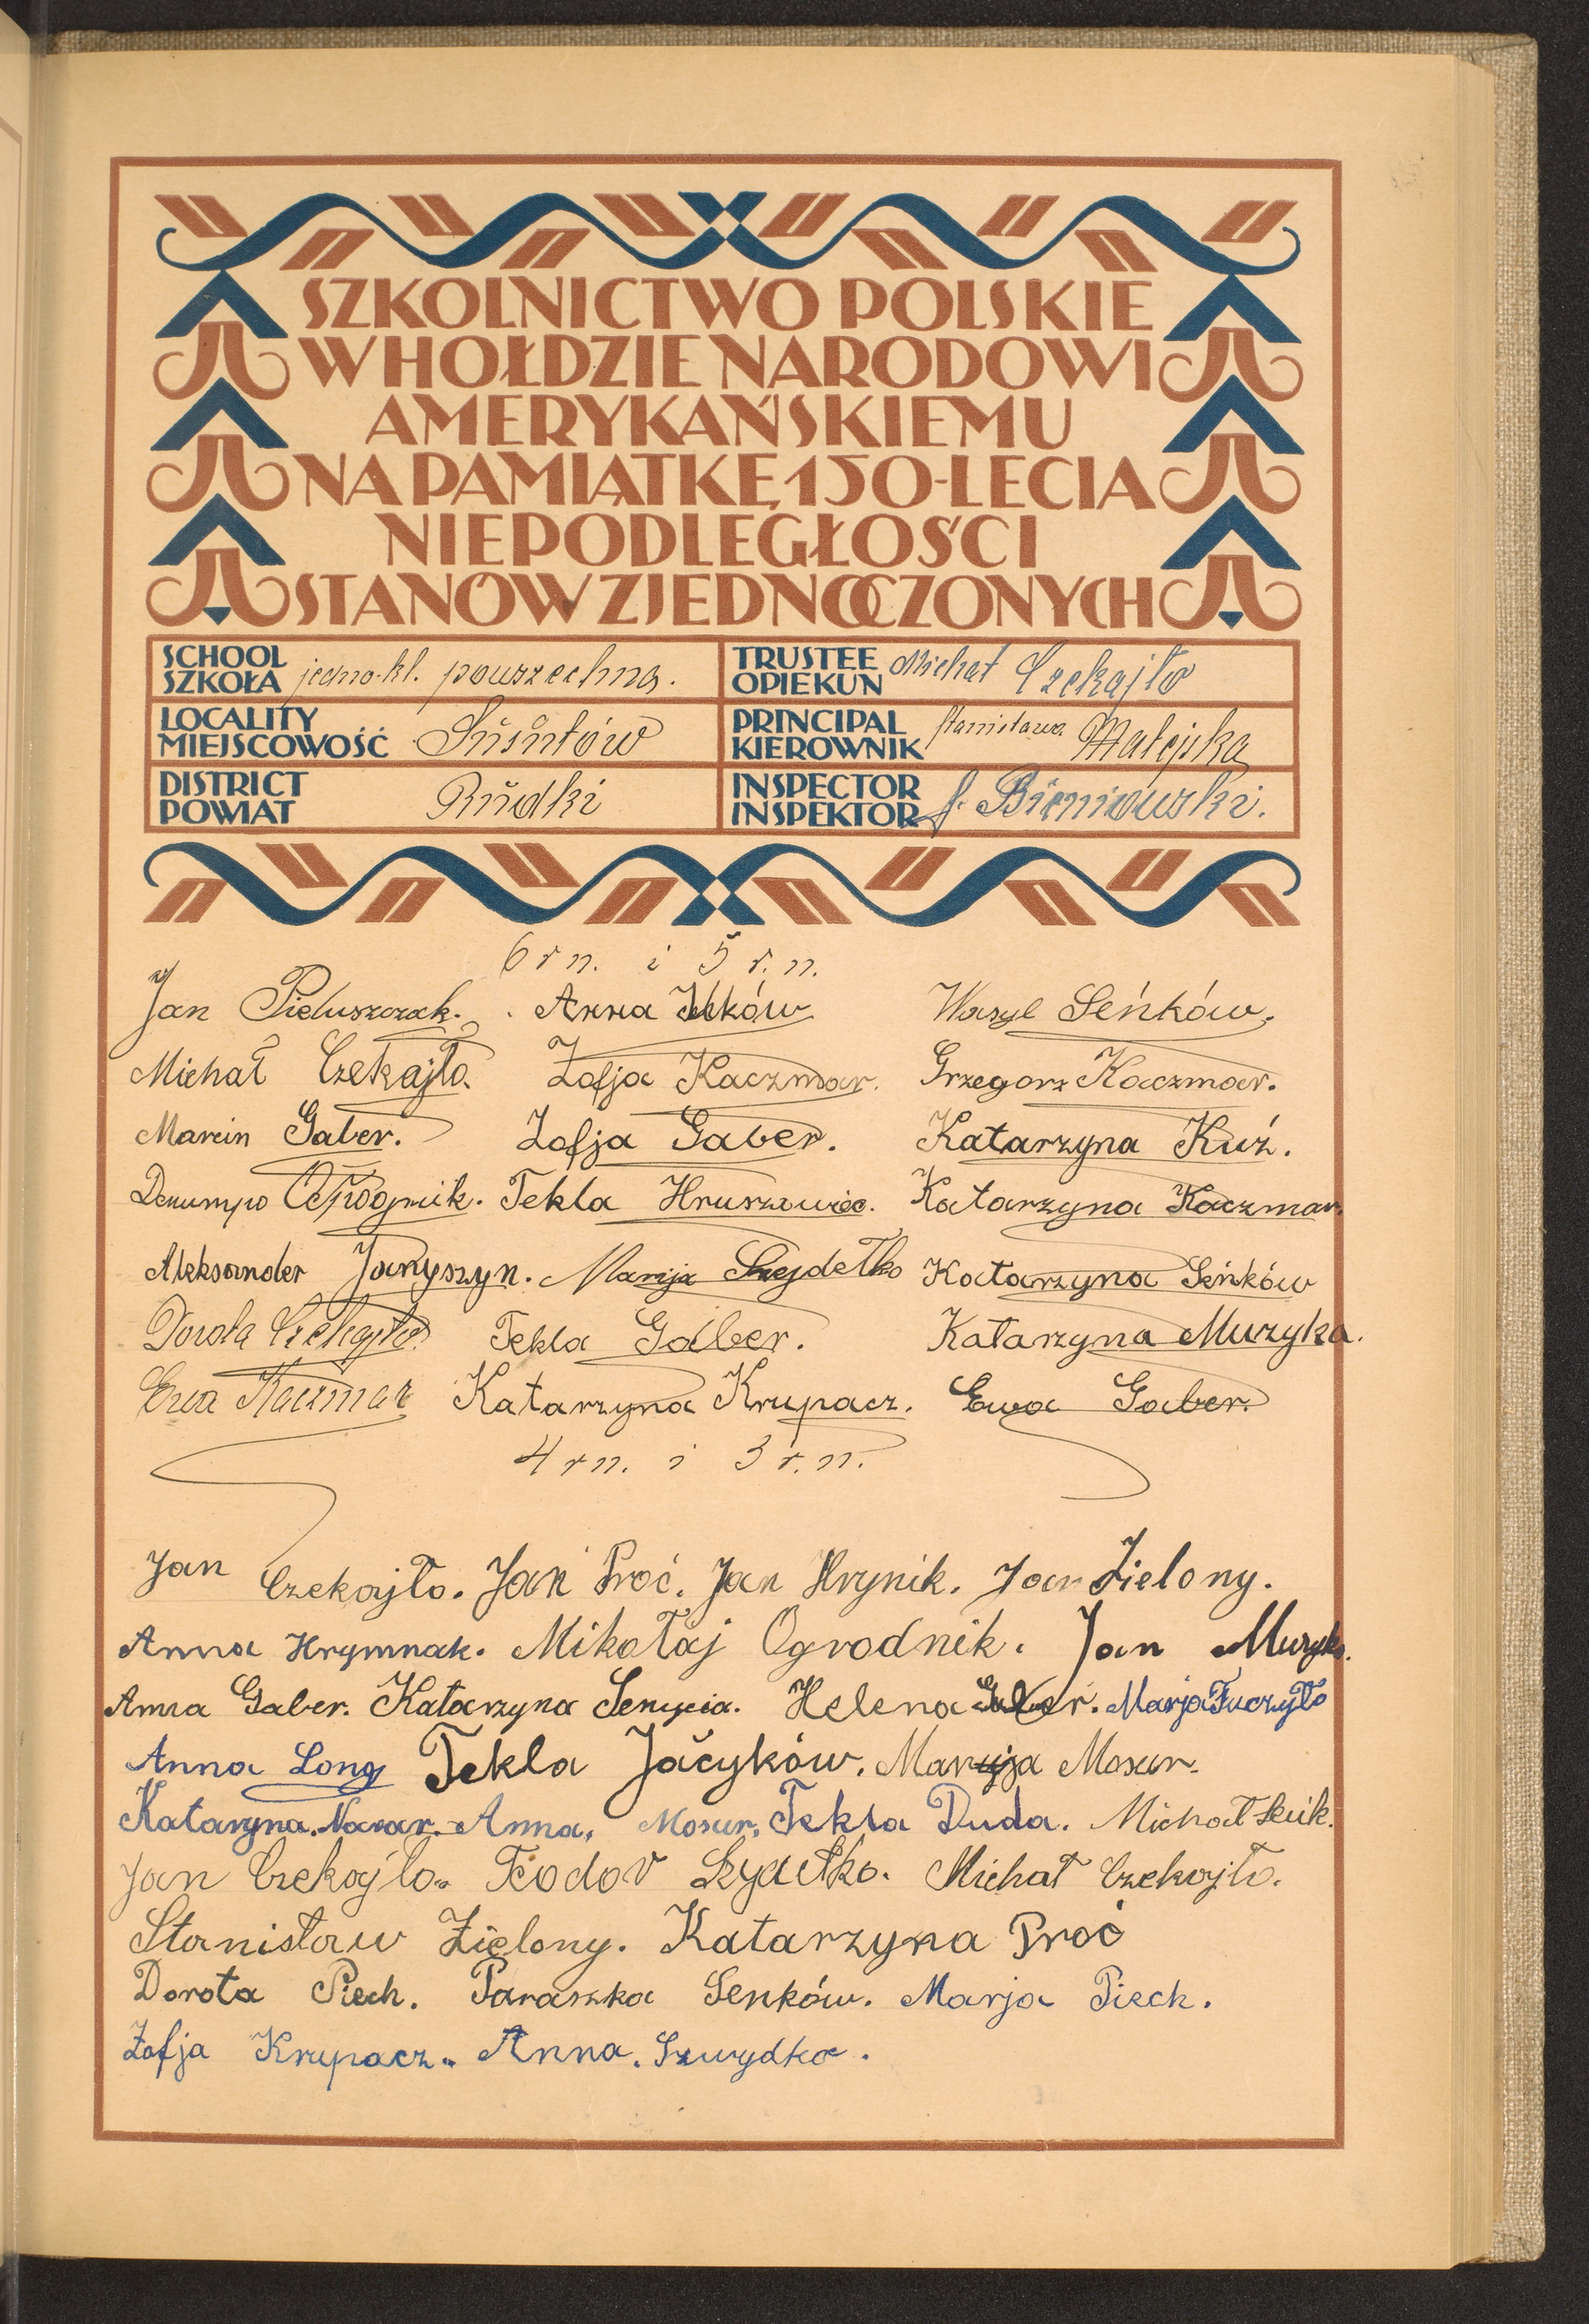 SZKOLNICTWO POLSKIE
W HOŁDZIE NARODOWI
AMERYKAŃSKIEMU
NA PAMIĄTKĘ 150-LECIA
NIEPODLEGŁOŚCI
STANÓW ZJEDNOCZONYCH
SCHOOL SZKOŁA jedno-kl. powszechna.
TRUSTEE OPIEKUN Michał Czekajło
LOCALITY MIEJSCOWOŚĆ Susułów
PRINCIPAL KIEROWNIK Stanisława Matejska
DISTRICT POWIAT Rudki
INSPECTOR INSPEKTOR J. Bieniowski.
6 r n. i 5 r. n.
Jan Pieluszczak. Anna Ilków Wasyl Seńków.
Michał Czekajło. Zofja Kaczmar. Grzegorz Kaczmar.
Marcin Gaber. Zofja Gaber. Katarzyna Kuź.
Tekla Hruszowiec. Katarzyna Kaczmar.
Aleksander Janyszyn. Marija Katarzyna Seńków
Dorota Czekajło. Tekla Gaber. Katarzyna Muzyka.
Ewa Kaczmar Katarzyna Krupacz. Ewa Gaber.
4 r n. i 3 r. n.
Jan Czekajło. Jan Proć. Jan Hrynik. Jan Zielony.
Anna Hrymnak. Mikołaj Ogrodnik. Jan Muzyka.
Anna Gaber. Katarzyna Helena Gaber. Marja
Anna Long Tekla Jacyków. Marija Mosur.
Kataryna. Anna, Mosur, Tekla Duda. Michał
Jan Czekajło. Teodor Michał Czekajło.
Stanisław Zielony. Katarzyna Proć
Dorota Piech. Paraszka Senków. Marja Piech.
Zofja Krupacz. Anna. Szwydka.